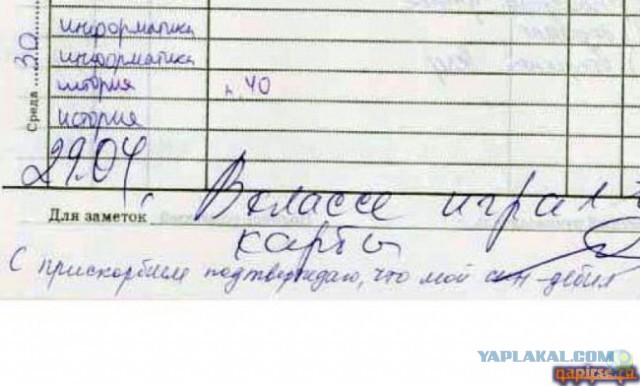 информатика
информатика
история п.40
история
Среда 30
29.04. В классе играл в
Для заметок
карты
С прискорбием подтверждаю, что мой сын - дебил
YAPLAKAL.COM
napirse.ru